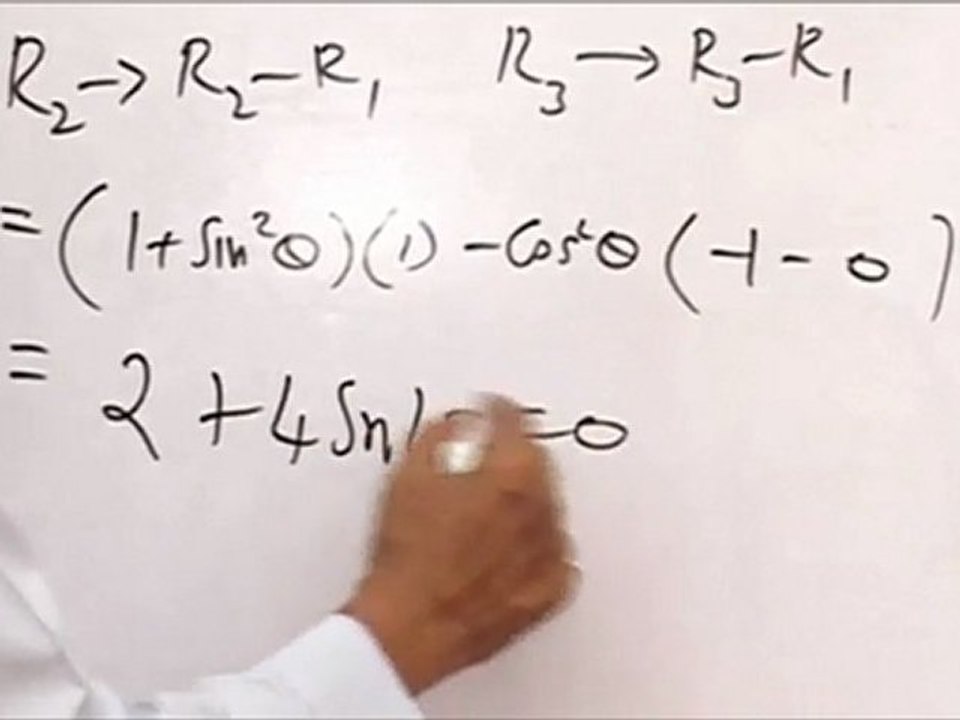 R₂ → R₂ - R₁ R₃ → R₃ - R₁
= (1 + Sin²θ)(1) - Cos²θ (-1 - 0)
= 2 + 4 Sin = 0